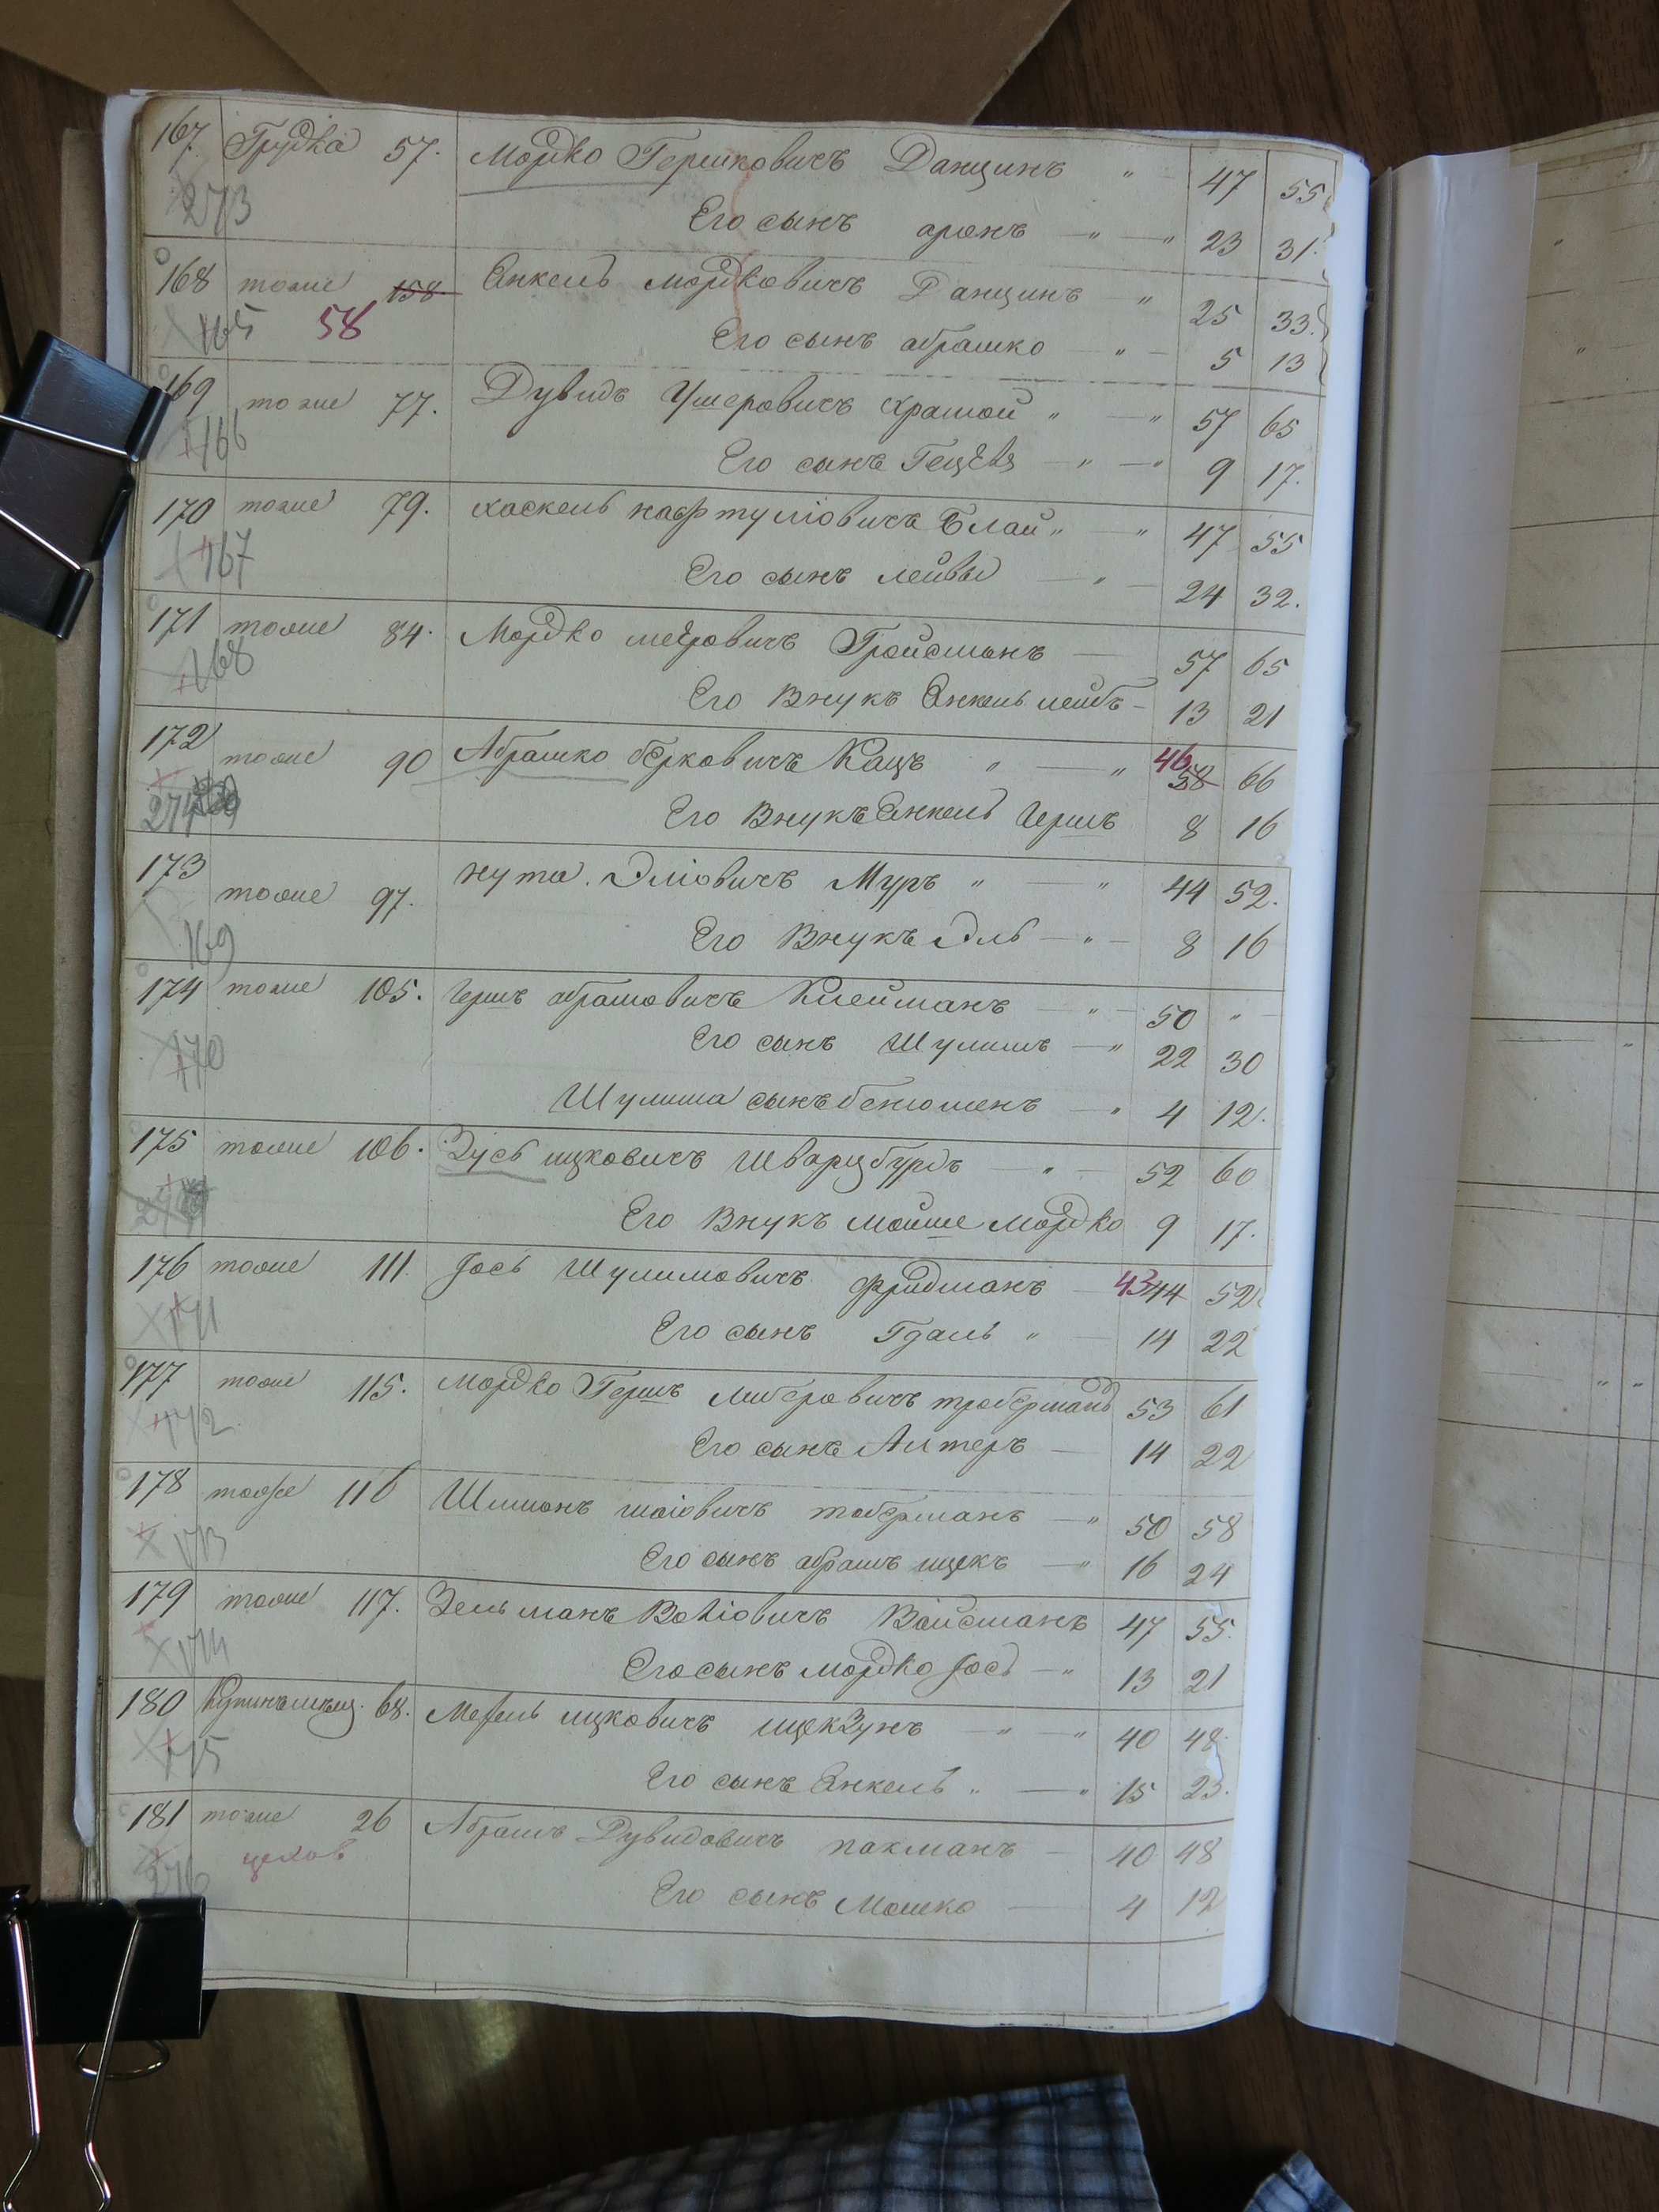 167 Грудка 57. Мордко Гершковичъ Данцинъ " 47 55
273 Его сынъ аронъ — " — " 23 31.
168 тоже 158 Янкель Мордковичъ Данцинъ — " 25 33.
165 58 Его сынъ абрашко — " — 5 13
169 тоже 77. Дувидъ Ушеровичъ Храмой " — " 57 65
166 Его сынъ — " — " 9 17.
170 тоже 79. хаскель нафтуліовичъ Блай " — " 47 55
167 Его сынъ лейвы — " — 24 32.
171 тоже 84. Мордко меёровичъ Гройсманъ — 57 65
168 Его Внукъ Янкель лейбъ — 13 21
172 тоже 90 Абрашко берковичъ Кацъ " — " 46 58 66
274 Его Внукъ Янкель Гершъ 8 16
173 тоже 97. нута. Эліовичъ Муръ " — " 44 52.
169 Его Внукъ Эль — " — 8 16
174 тоже 105. Гершъ абрамовичъ Клейманъ — " — 50 " —
170 Его сынъ Шулимъ — " 22 30
Шулима сынъ бенюменъ — " 4 12.
175 тоже 106. Зусь ицковичъ Шварцбурдъ — " — 52 60
Его Внукъ мойше мордко 9 17.
176 тоже 111. Іось Шулимовичъ фридманъ — 43 44 52
171 Его сынъ Гдаль " — 14 22
177 тоже 115. Мордко Гершъ Лейбровичъ 53 61
172 Его сынъ Алтеръ — 14 22
178 тоже 116 Шимонъ шаіовичъ таберманъ — " 50 58
173 Его сынъ абрамъ ицекъ — " 16 24
179 тоже 117. Зельманъ Волiовичъ Вайсманъ 47 55.
174 Его сынъ мордко Іось — " 13 21
180 68. ицковичъ ицекзунъ — " — " 40 48
175 Его сынъ Янкель " — " 15 23.
181 тоже 26 Абрамъ Дувидовичъ пакманъ — 40 48
276 цехов Его сынъ Мошко — 4 12